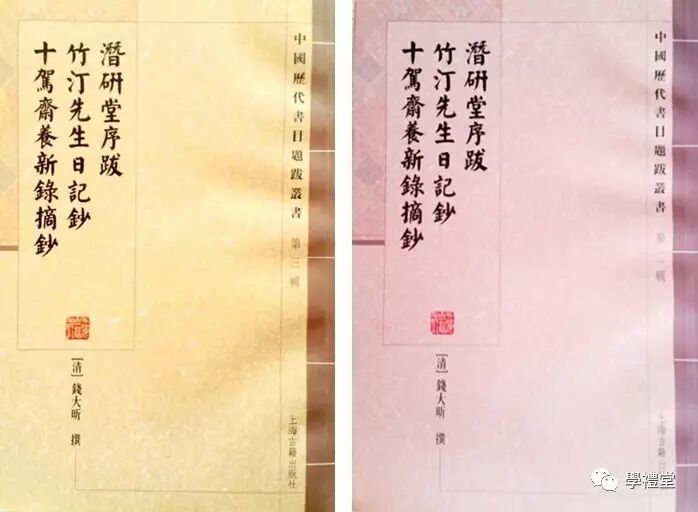 中國歷代書目題跋叢書
第三輯
潛研堂序跋
竹汀先生日記鈔
十駕齋養新錄摘鈔
[清]錢大昕 撰
上海古籍出版社
中國歷代書目題跋叢書
第三輯
潛研堂序跋
竹汀先生日記鈔
十駕齋養新錄摘鈔
[清]錢大昕 撰
上海古籍出版社
學禮堂